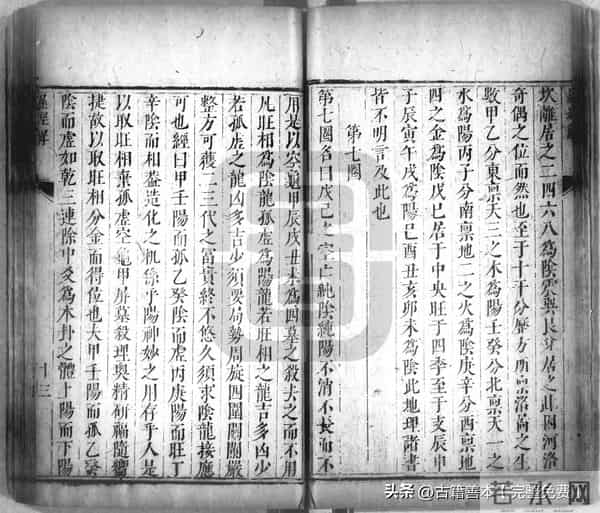 坎離居之二四六八為陰震與艮兌居之此因河洛
奇偶之位而然也至于十干分屬方而稟洛尚之生
數甲乙分東稟天三之木為陽壬癸分北稟天一之
水為陽丙丁分南稟地二之火為陰庚辛分西稟地
四之金為陰戊巳居于中央旺于四季至于支辰申
子辰寅午戌為陽巳酉丑亥卯未為陰此地理諸書
皆不明言及此也
第七圖
第七圖名曰戊己之空亡純陰純陽不消不長而不
用是以空龜甲辰戌丑未為四墓之殺夫之而不用
凡旺相為陰龍孤虛為陽龍若旺相之龍吉多凶少
若孤虛之龍凶多吉少須要局勢周旋四圍關闌嚴
整方可獲二三代之富貴終不悠久須求陰龍接應
可也經曰甲壬陽而孤乙癸陰而虛丙庚陽而旺丁
辛陰而相蓋造化之机緣乎陽神妙之用存乎人是
以取旺相棄孤虛空龜甲屏墓殺理奧精研禍隨響
捷故以取旺相分金而得位也夫甲壬陽而孤乙癸
陰而虛如乾三連除中爻為木卦之體上陽而下陽
經解
十三
頭條 @古籍善本 完整免費